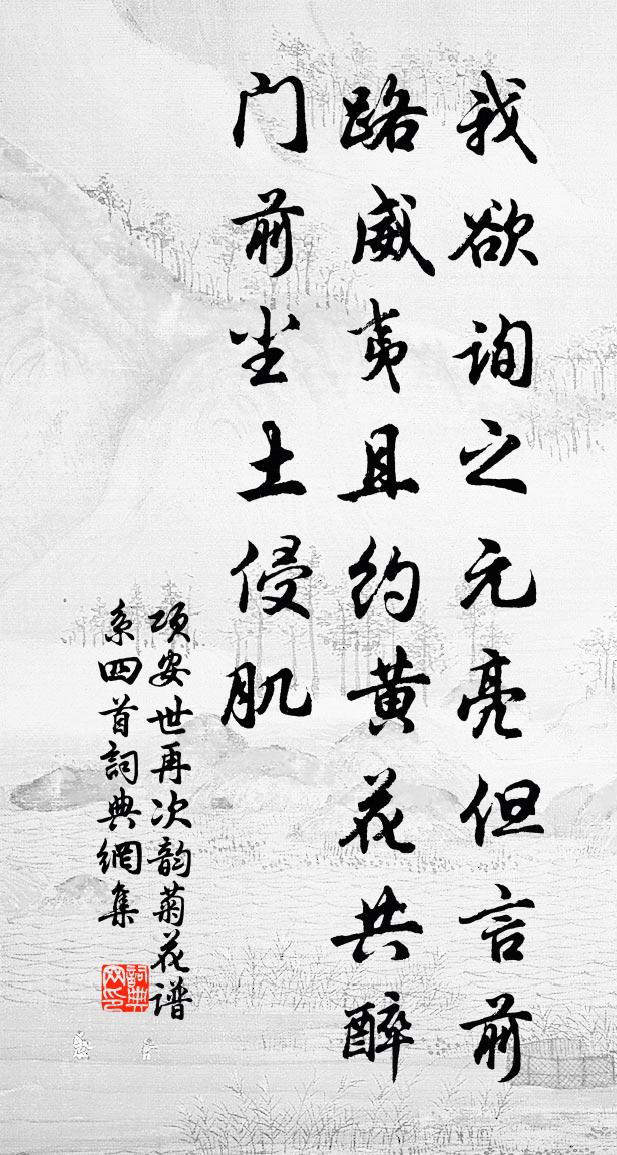 我欲询之元亮但言前
路威夷且约黄花共醉
门前尘土侵肌
项安世再次韵菊花谱
系四首詞典網集
詞典
网印